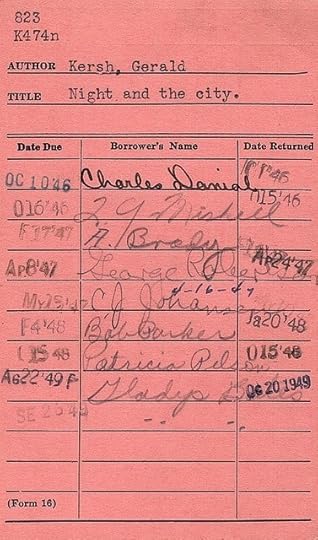 823
K474n
AUTHOR Kersh, Gerald
TITLE Night and the city.
Date Due Borrower's Name Date Returned
OC 10'46 Charles Danial '46
O16'46 O15'46
F17'47 A. Brady
Ap8'47 George Ap24'47
My25'47 C.J. 4-16-47
F4'48 Bob Parker Ja20'48
15 48 Patricia O15'48
AG22'49 Gladys OG 20 1949
SE 26 49 " "
(Form 16)